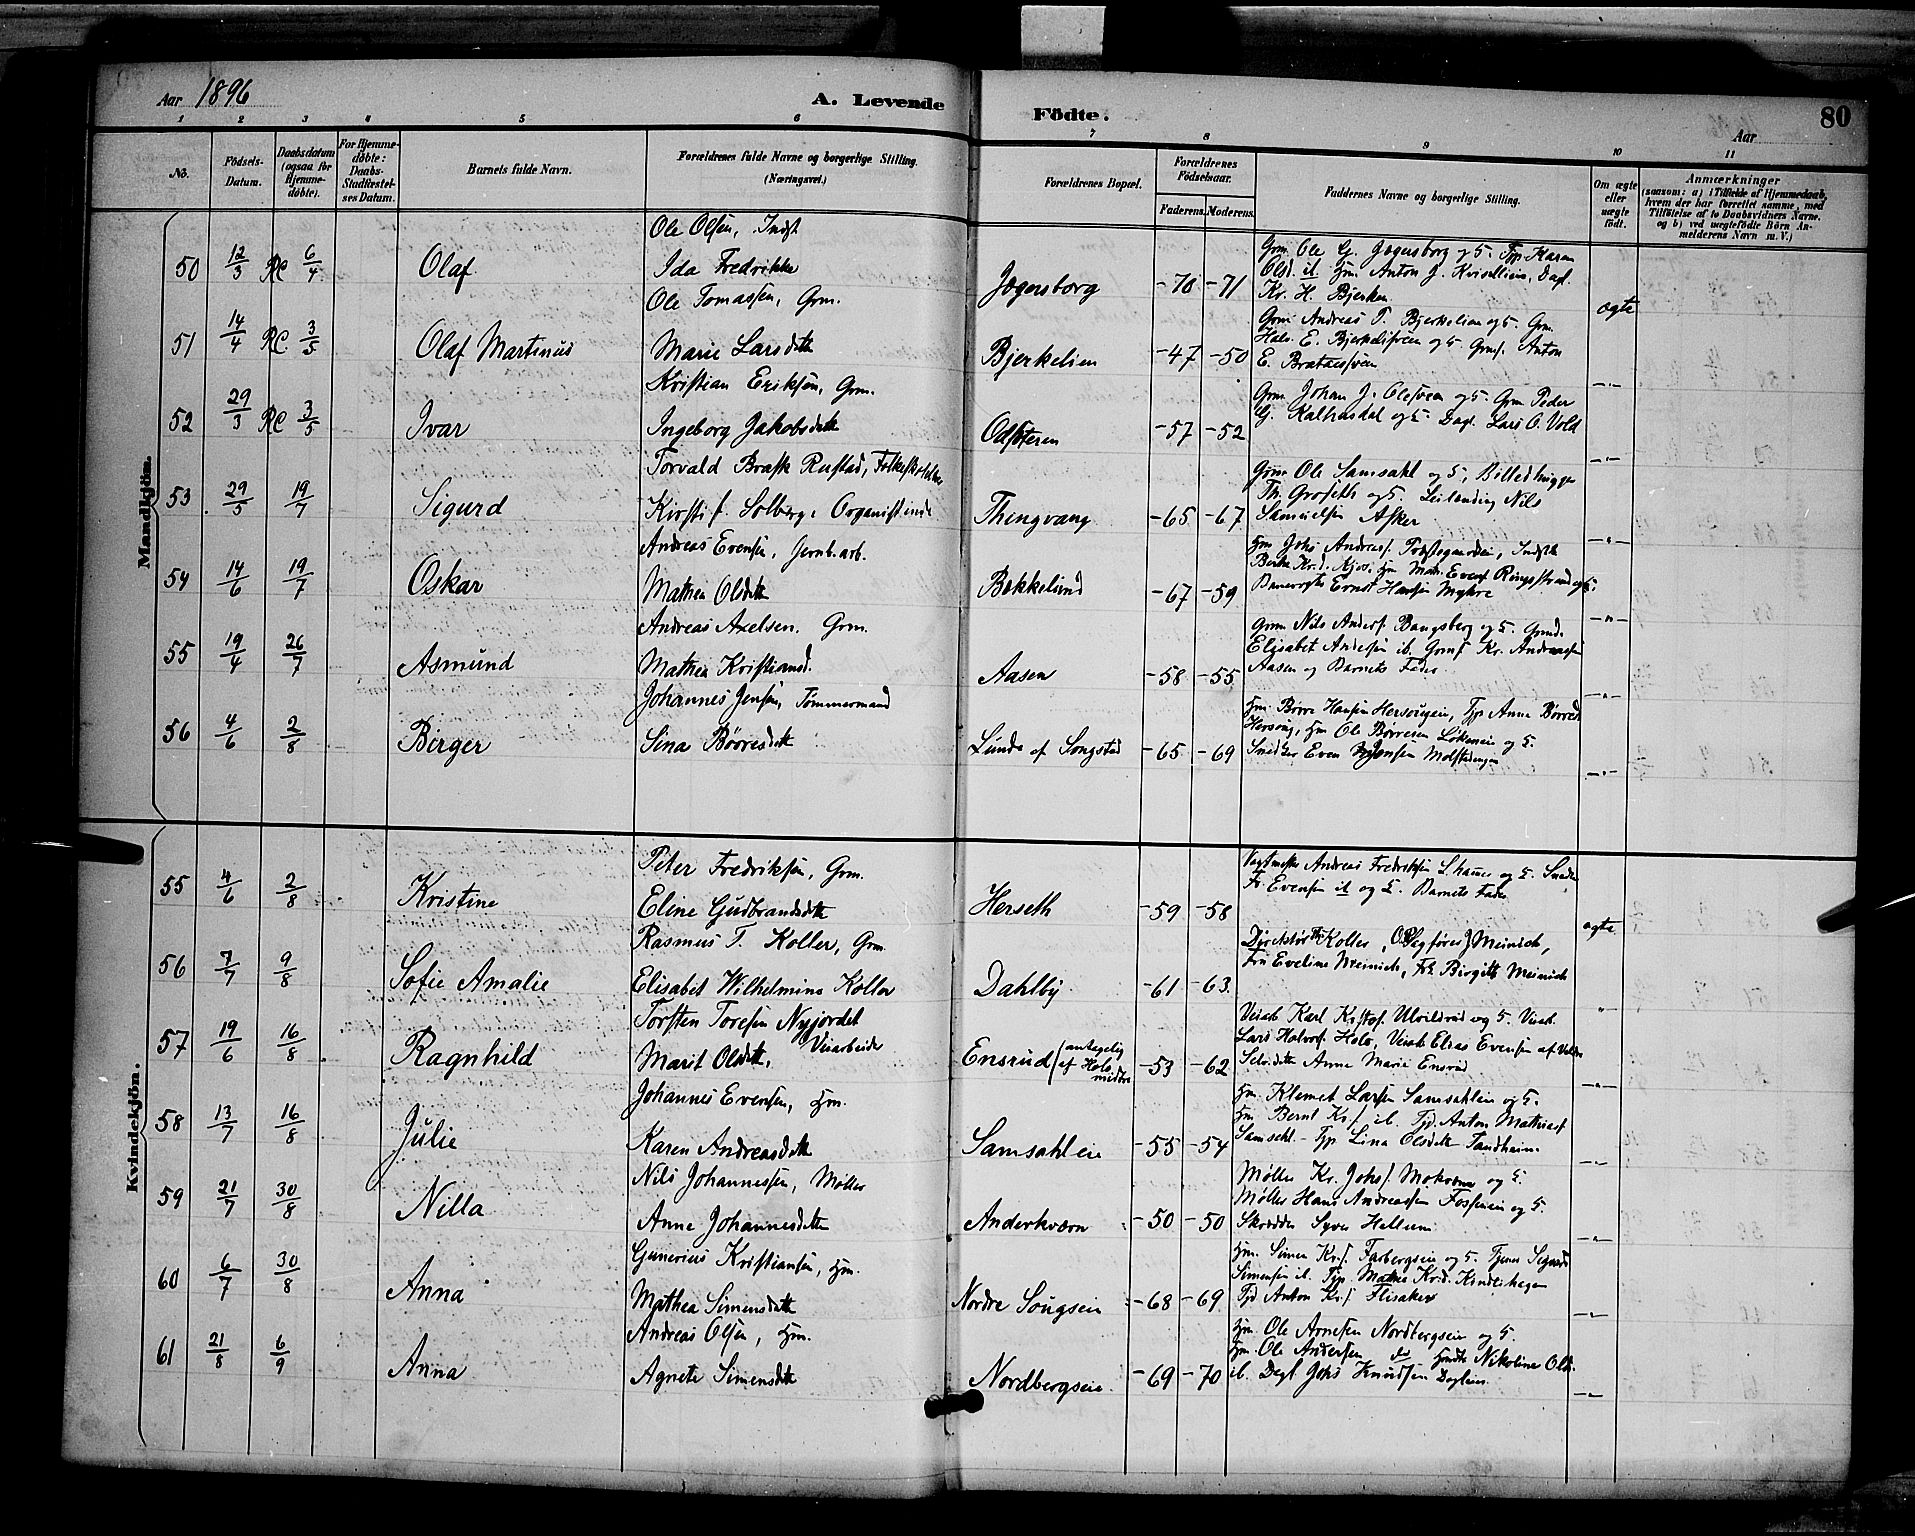 Aar 1896
A. Levende
Födte.
80
Aar
1 2 3 4 5 6 7 8 9 10 11
No.
Födsels-Datum.
Daabsdatum (ogsaa for Hjemme-döbte).
For Hjemme-döbte: Daabs-Stadfæstel-ses Datum.
Barnets fulde Navn.
Forældrenes fulde Navne og borgerlige Stilling. (Næringsvei.)
Forældrenes Bopæl.
Forældrenes Födselsaar.
Faderens. Moderens.
Faddernes Navne og borgerlige Stilling.
Om ægte eller uægte födt.
Anmærkninger
(saasom: a) i Tilfælde af Hjemmedaab, hvem der har forrettet samme, med Tilföielse af to Daabsvidners Navne. og b) ved uægtefödte Börn An-melderens Navn m. V.)
Mandkjön.
50 12/3 RC 6/4 Olaf
Ole Olsen, Indst
Ida Fredrikke
Jøgersborg -70 -71
Grm Ole G. Jøgersborg og 5. Tjp. Karen
Olsd. ib. Hm Anton J. Kvisellien, Dagl.
Kr. H. Bjerken
ægte
51 14/4 RC. 3/5 Olaf Martinus
Ole Tomassen, Grm.
Marie Larsdtt
Bjerkelien -47 -50
Grm Andreas T. Bjerkelien og 5. Grm.
Halv. E. Bjerkelien og 5 Grms. Anton
E.
-"-
52 29/3 RC 3/5 Ivar
Kristian Eriksen, Grm.
Ingeborg Jakobsdtt
Odsæteren -57 -52
Grm Johan J. Olesveen og 5. Grm Peder
G. Kalhusdal og 5. Dagl. Lars O. Vold
-"-
53 29/5 19/7 Sigurd
Torvald Brask Rustad,
Kirsti f. Solberg, Organistinde
Thingvang -65 -67
Grm Ole Samsahl og 5, Billedhugger
Th. Groseth og 5. Leilending Nils
Samuelsen Asker
-"-
54 14/6 19/7 Oskar
Andreas Evensen, Jernb. arb.
Mathea Olsdtt
Bekkelund -67 -59
Hm Johs Andreas. Prestegaardei, Indstk
Berthe Kr.d. Kjos. Hm Math. Evens Ringsstrand og 5.
Banevogter Ernst Hansen Myhre
-"-
55 19/4 26/7 Asmund
Andreas Axelsen. Grm.
Mathea Kristiansd.
Aasen -58 -55
Grm Nils Anders. Bangsberg og 5. Grmd.
Elisabet Andersen ib. Grms Kr. Andreassen
Aasen og Barnets Fader.
-"-
56 4/6 2/8 Birger
Johannes Jensen, Tømmermand
Sina Børresdtt
Lunde af Songstad -65 -69
Hm. Børre Hansen Hersougeie, Tjp Anne Børresd
Hersoug, Hm Ole Børresen Løkeneie og 5.
Snedker Even Jensen Molstadengen
-"-
Kvindekjön.
55 4/6 2/8 Kristine
Peter Fredriksen, Grm.
Eline Gudbrandsdtt
Herseth -59 -58
Vagtmester Andreas Fredriksen L.hammer og 5. Snedker
Fr. Evensen ib og 5. Barnets Fader
ægte
56 7/7 9/8 Sofie Amalie
Rasmus T. Koller, Grm
Elisabet Wilhelmine Koller
Dahlby -61 -63.
Direktør Th Koller, Meinich,
Fru Eveline Meinich, Frk. Birgitte Meinich
"
57 19/6 16/8 Ragnhild
Torsten Toresen Nyjordet
Veiarbeider
Marit Olsdtt,
Ensrud (antagelig af Hols midtre -53 -62
Veiarb Karl Kristof. Ulvilsrud og 5. Veiarb.
Lars Halvors. Holo, Veiarb Elias Evensen af Valdr
Selv.dtt Anne Marie Ensrud
-"-
58 13/7 16/8 Julie
Johannes Evensen, Hm.
Karen Andreasdtt
Samsahleie -55 -54
Hm. Klemet Larsen Samsahleie og 5.
Hm Bernt Kr.s ib. Tjd. Anton Mathias.
Samsahl - Tjp Lina Olsdtt Sandheim
-"-
59 21/7 30/8 Nilla
Nils Johannessen, Møller
Anne Johannesdtt
Anderkværn -50 -50
Møller Kr. Johs. Mokværn og 5.
Møller Hans Andreassen Fosseneie og 5.
Skrædder Syver Hellum
-"-
60 6/7 30/8 Anna
Gunerius Kristiansen, Hm.
Mathea Simensdtt
Nordre Sougseie -68 -69
Hm. Simen Kr.s. Farbergseie og 5. Tjener Sigvard
Simensen ib. Tjp. Mathea Kr.d. Kindlihagen
Tjd Anton Kr.s Flisaker
-"-
61 21/8 6/9 Anna
Andreas Olsen, Hm.
Agnete Simensdtt
Nordbergseie -69 -70
Hm. Ole Arnesen Nordbergseie og 5.
Hm. Ole Andersen Nikoline Olsd.
ib. Dagl Johs Knudsen Dagleien
-"-